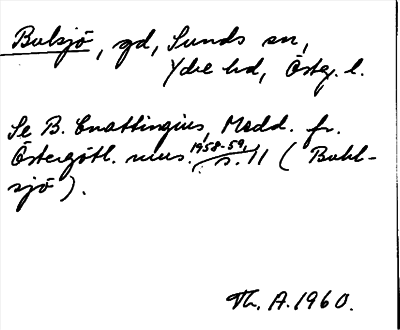 Bulsjö, gd, Sunds sn,
Ydre hd, Östg. l.
Se B. Cnattingius, Medd. fr.
Östergötl. mus. 1958-59, s. 11 (Buhl-
sjö).
Th. A. 1960.